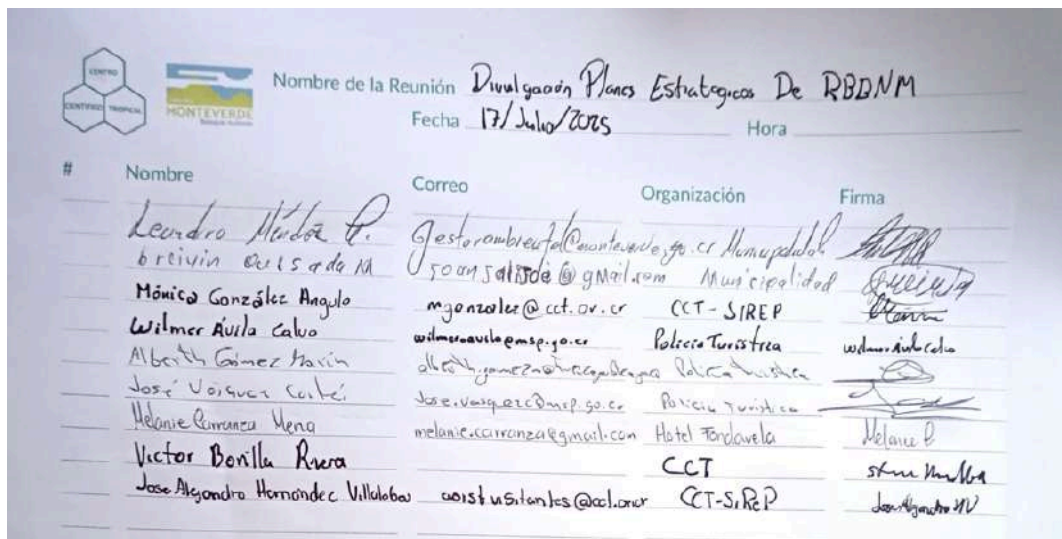 CENTRO
CIENTIFICO TROPICAL
MONTEVERDE
Nombre de la Reunión Divulgación Planes Estrategicos De RBBNM
Fecha 17/Julio/2025 Hora
# Nombre Correo Organización Firma
Leandro Méndez
breivin gmail.com Municipalidad
Mónica González Angulo mgonzalez@cct.or.cr CCT-SIREP
Wilmer Ávila Calvo wilmer.avila@msp.go.cr Policía Turística Wilmer Ávila Calvo
Alberth Gómez Marín Policía Turística
José jose.vasquezc@msp.go.cr Policía Turística
Melanie Carranza Mena melanie.carranza@gmail.com Hotel Melanie
Victor Bonilla Rivera CCT
Jose Alejandro Hernández Villalobos CCT-SIREP Jose Alejandro HV